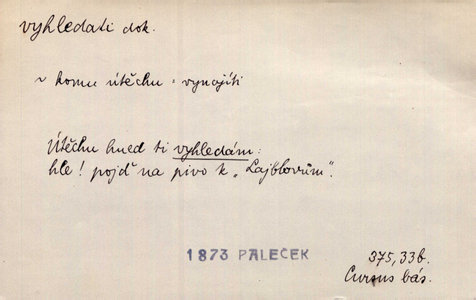 vyhledati dok.
~ komu útěchu = vynajíti
Útěchu hned ti vyhledám:
hle! pojď na pivo k „Lajblovům“.
1873 PALEČEK
375,33b.
Cursus bás.